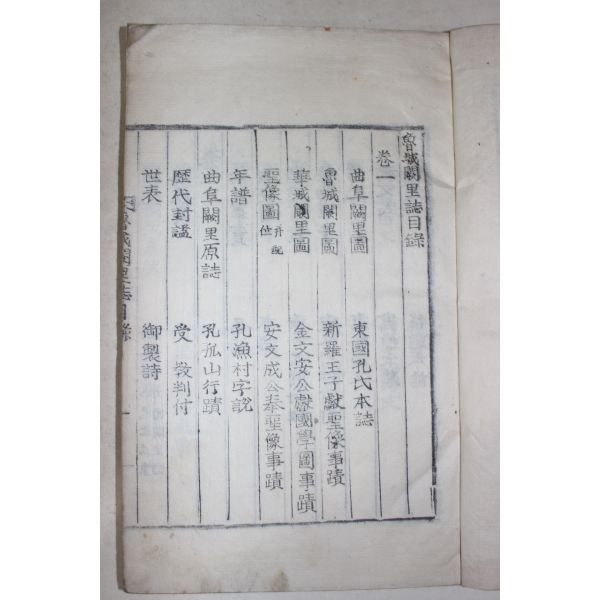 魯城闕里誌目錄
卷一
曲阜闕里圖 東國孔氏本誌
魯城闕里圖 新羅王子獻聖像事蹟
華城闕里圖 金文安公獻國學圖事蹟
聖像圖 并配位 安文成公奉聖像事蹟
年譜 孔漁村字說
曲阜闕里原誌 孔孤山行蹟
歷代封諡 受教判付
世表 御製詩
魯城闕里誌目錄 一